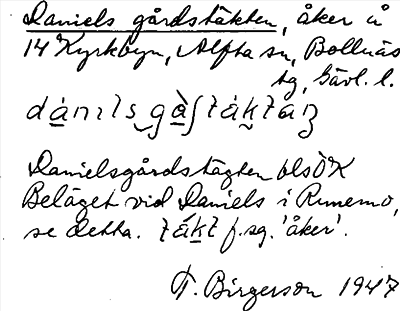 Daniels gårdstäkten, åker å
14 Kyrkbyn, Alfta sn, Bollnäs
tg, Gävl. l.
Danielsgårdstägten blsÖK
Beläget vid Daniels i Runemo,
se detta. f.sg. 'åker'.
T. Birgerson 1947